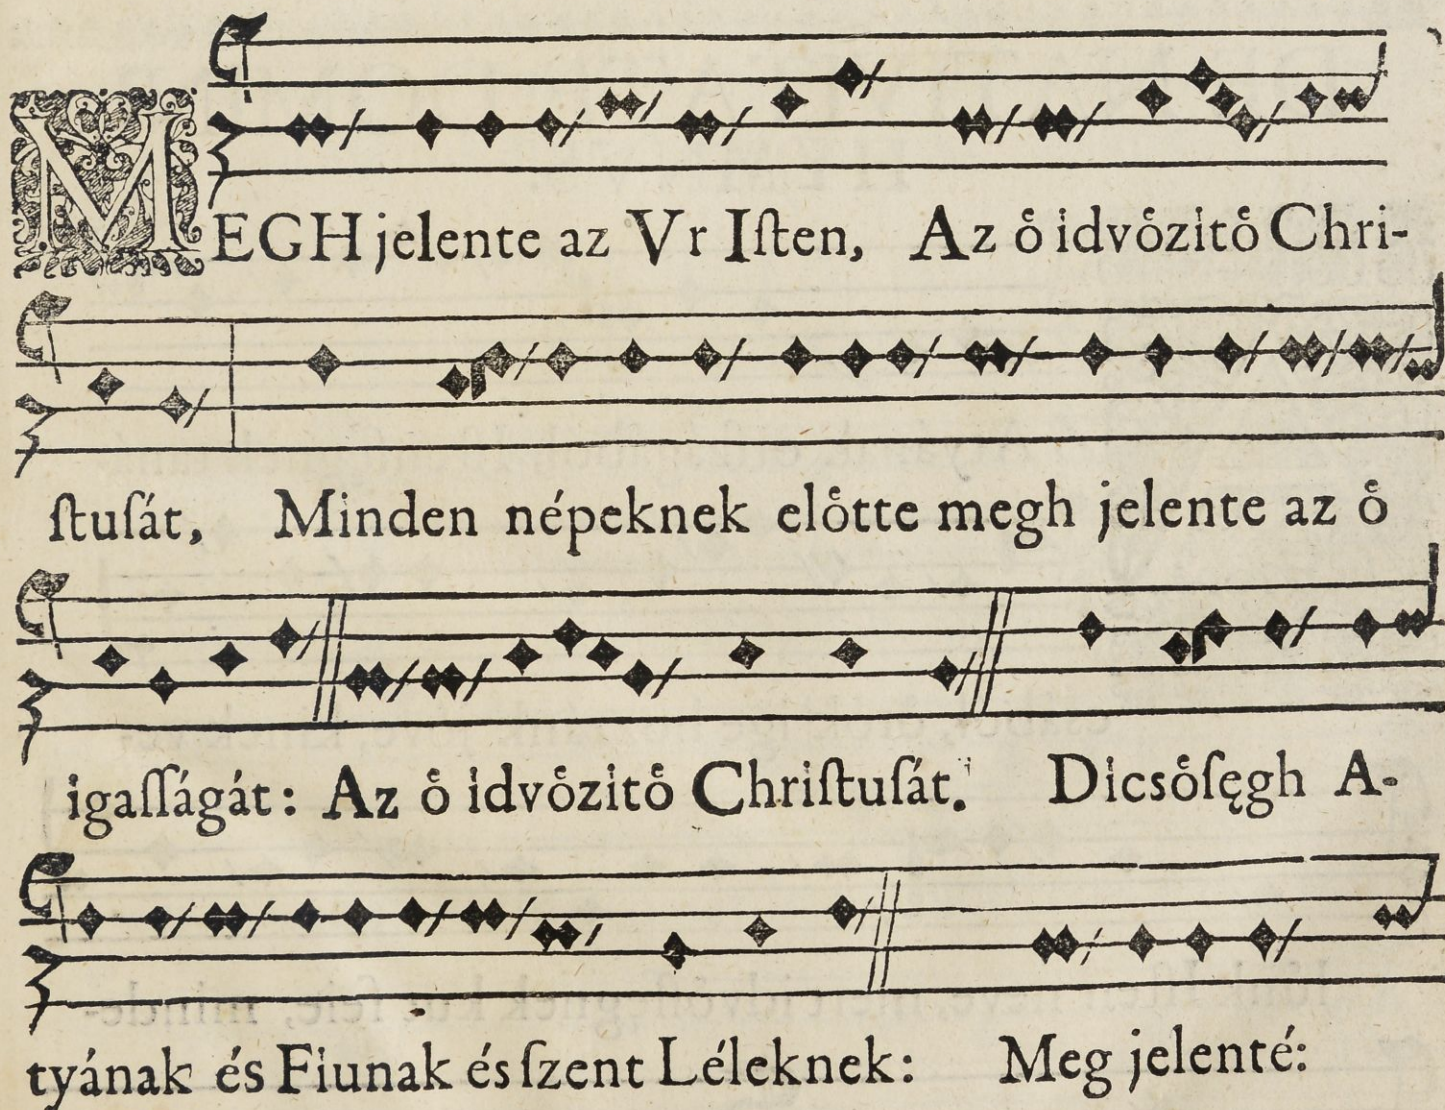 MEGH jelente az Vr Iſten, Az o̊ idvo̊zito̊ Chri-
ſtuſát, Minden népeknek elo̊tte megh jelente az o̊
igaſſágát: Az o̊ idvo̊zito̊ Chriſtuſát. Dicso̊ſęgh A-
tyának és Fiunak és ſzent Léleknek: Meg jelenté: